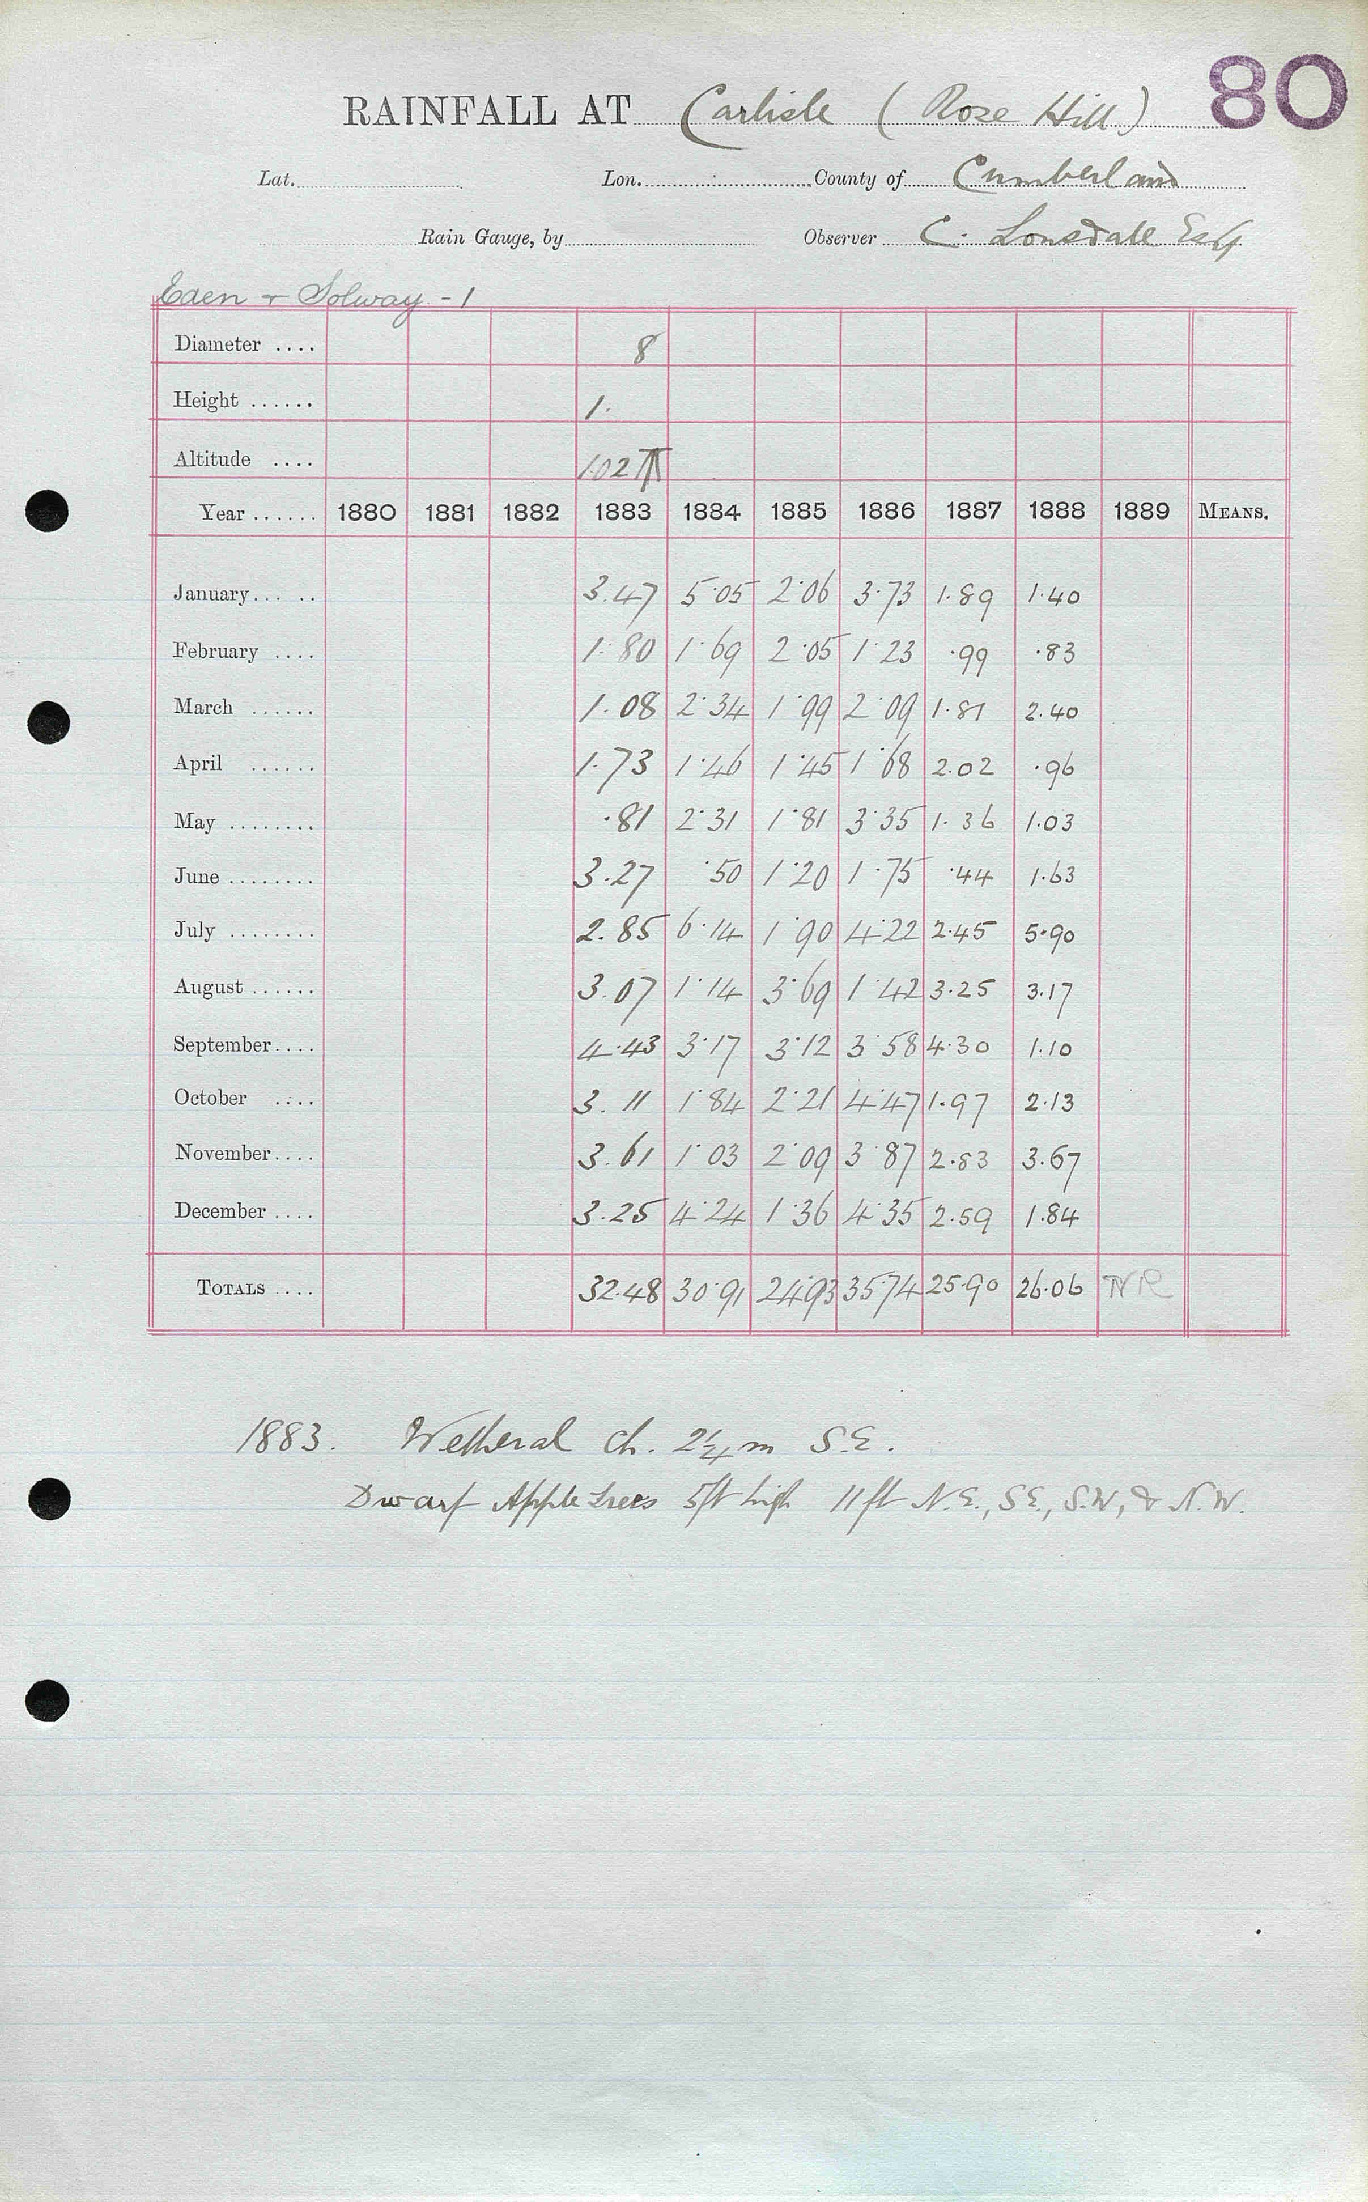 80
RAINFALL AT Carlisle (Rose Hill)
Lat. Lon. County of Cumberland
Rain Gauge, by Observer C. Lonsdale Esq
Eden + Solway - 1
Diameter .... 8
Height ...... 1.
Altitude .... 102
Year ...... 1880 1881 1882 1883 1884 1885 1886 1887 1888 1889 MEANS.
January ... .. 3.47 5.05 2.06 3.73 1.89 1.40
February .... 1.80 1.69 2.05 1.23 .99 .83
March ...... 1.08 2.34 1.99 2.09 1.81 2.40
April ...... 1.73 1.46 1.45 1.68 2.02 .96
May ........ .81 2.31 1.81 3.35 1.36 1.03
June ........ 3.27 .50 1.20 1.75 .44 1.63
July ........ 2.85 6.14 1.90 4.22 2.45 5.90
August ...... 3.07 1.14 3.69 1.42 3.25 3.17
September .... 4.43 3.17 3.12 3.58 4.30 1.10
October .... 3.11 1.84 2.21 4.47 1.97 2.13
November .... 3.61 1.03 2.09 3.87 2.83 3.67
December .... 3.25 4.24 1.36 4.35 2.59 1.84
TOTALS .... 32.48 30.91 24.93 35.74 25.90 26.06 NR
1883. Wetheral Ch. 2¼ m S.E.
Dwarf Apple trees 5ft high 11ft N.E., S.E., S.W., & N.W.